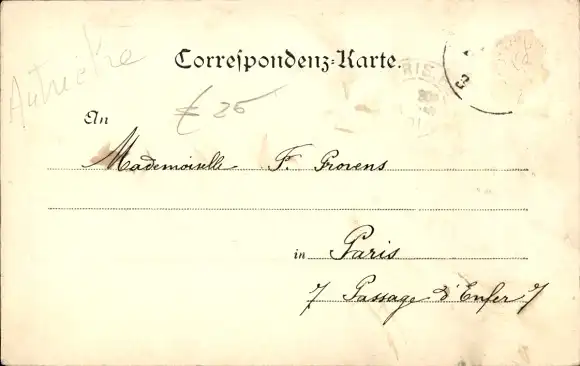 Autriche
Correspondenz-Karte.
€ 25
An
Mademoiselle F. Provens
in Paris
7 Passage d'Enfer 7